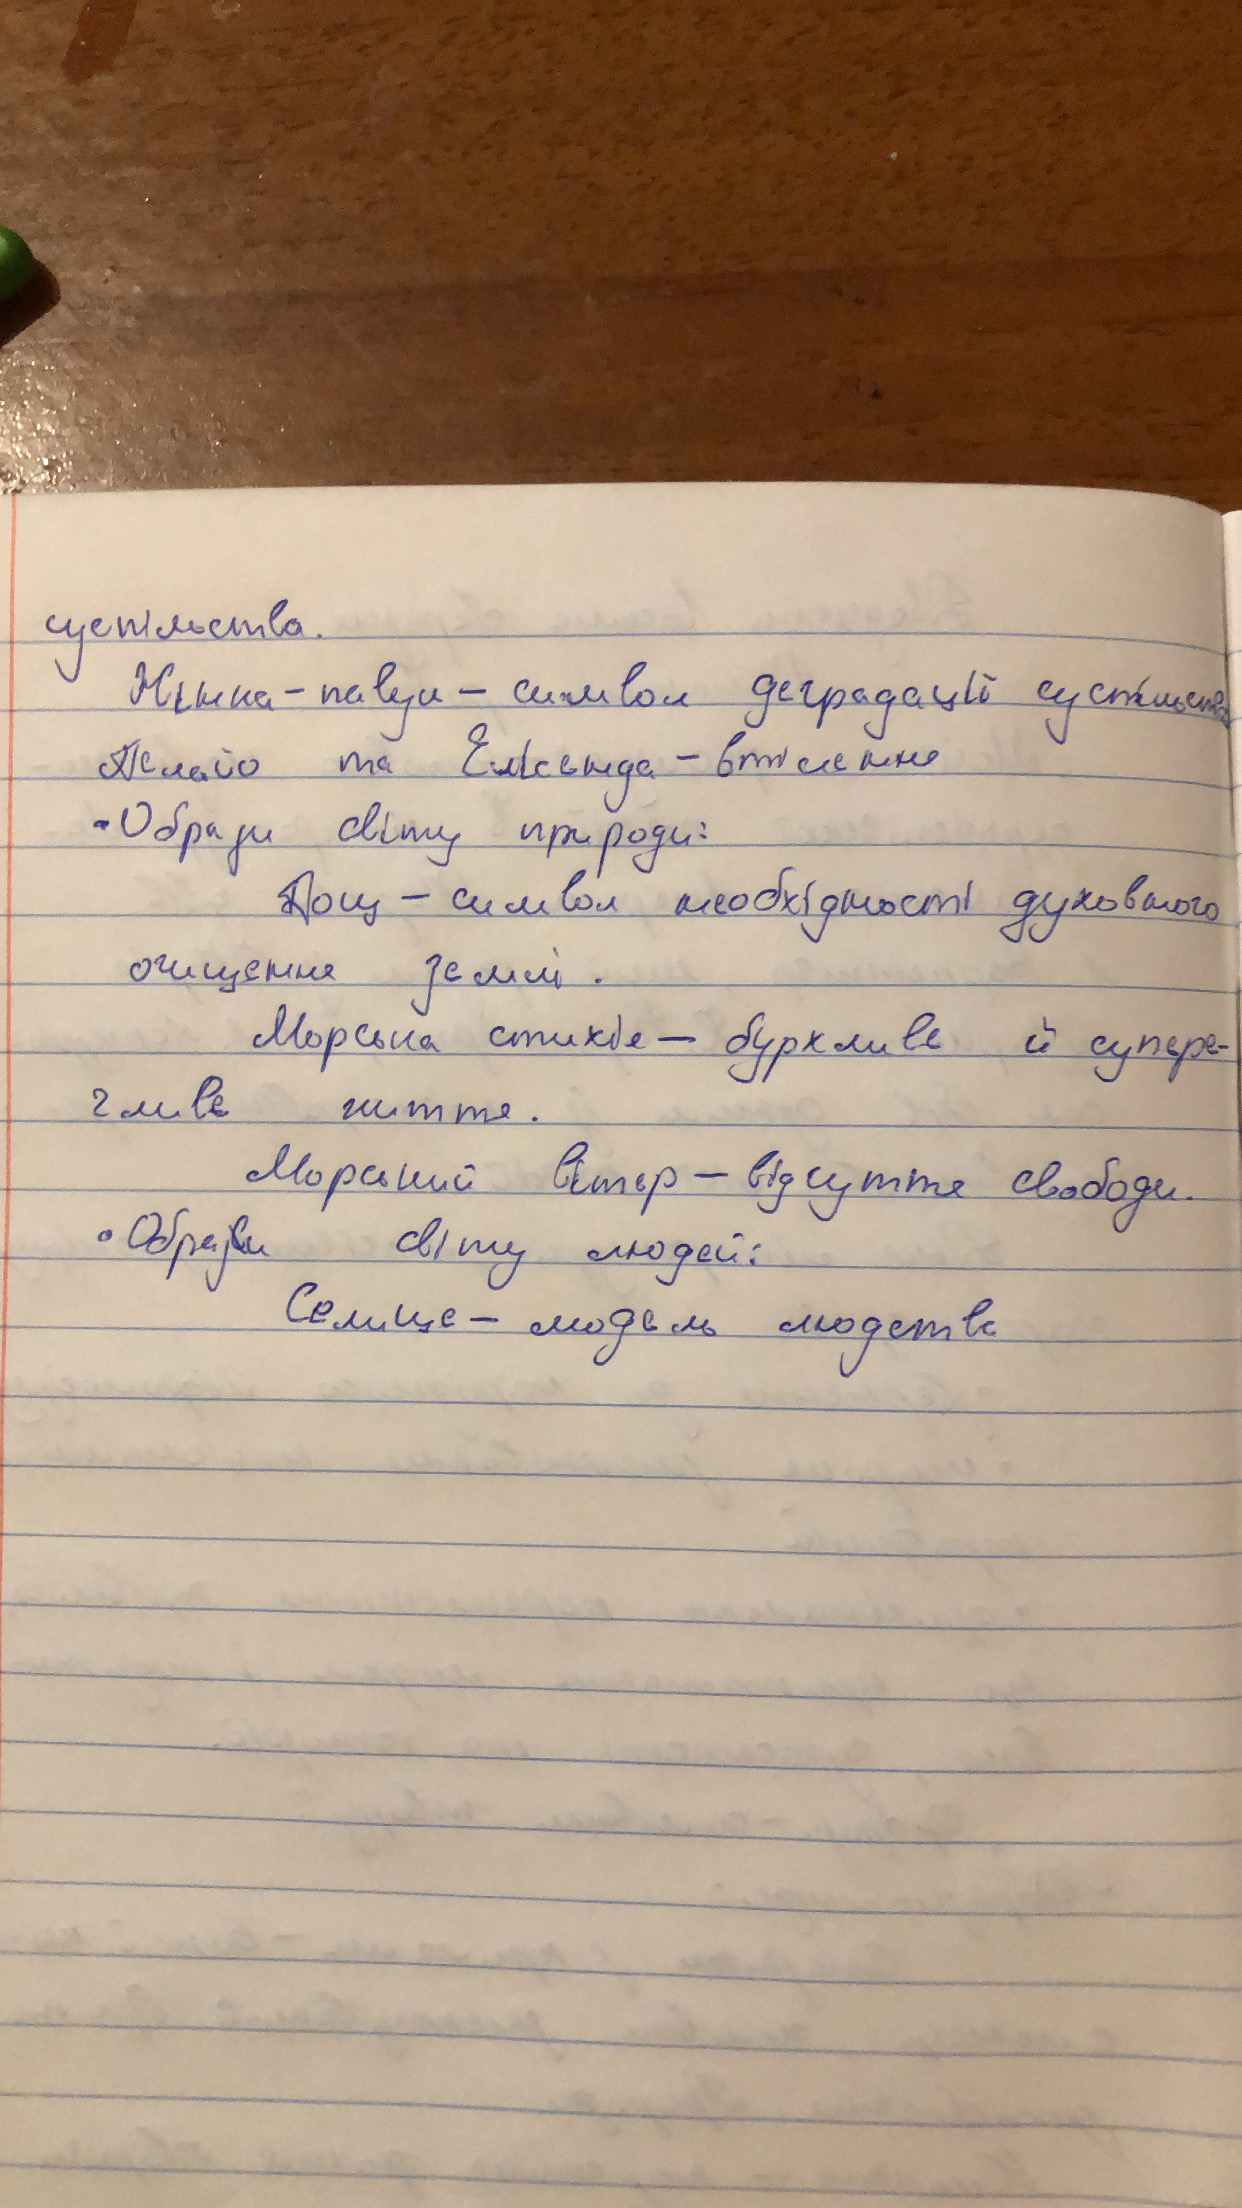 суспільства.
Жінка-павук - символ деградації суспільства
Пелайо та Елісенда - втілення
• Образи світу природи:
Дощ - символ необхідності духовного
очищення землі.
Морська стихія - бурхливе й супере-
чливе життя.
Морський вітер - відчуття свободи.
• Образи світу людей:
Селище - модель людства